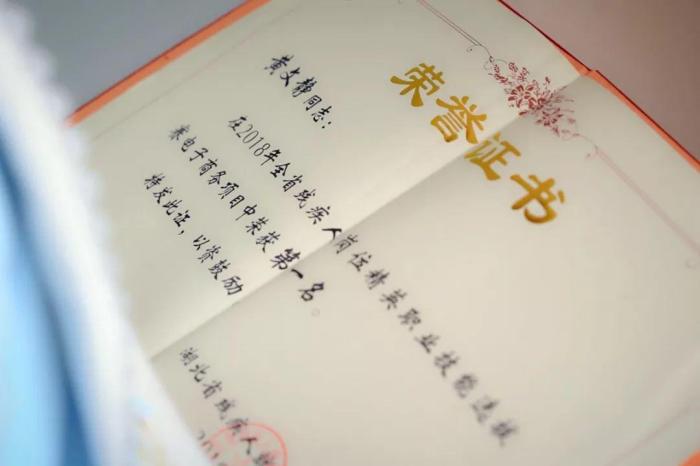 荣誉证书
黄文静同志：
在2018年全省残疾人岗位精英职业技能选拔
赛电子商务项目中荣获 第一名
特发此证，以资鼓励
湖北省残疾人联
201